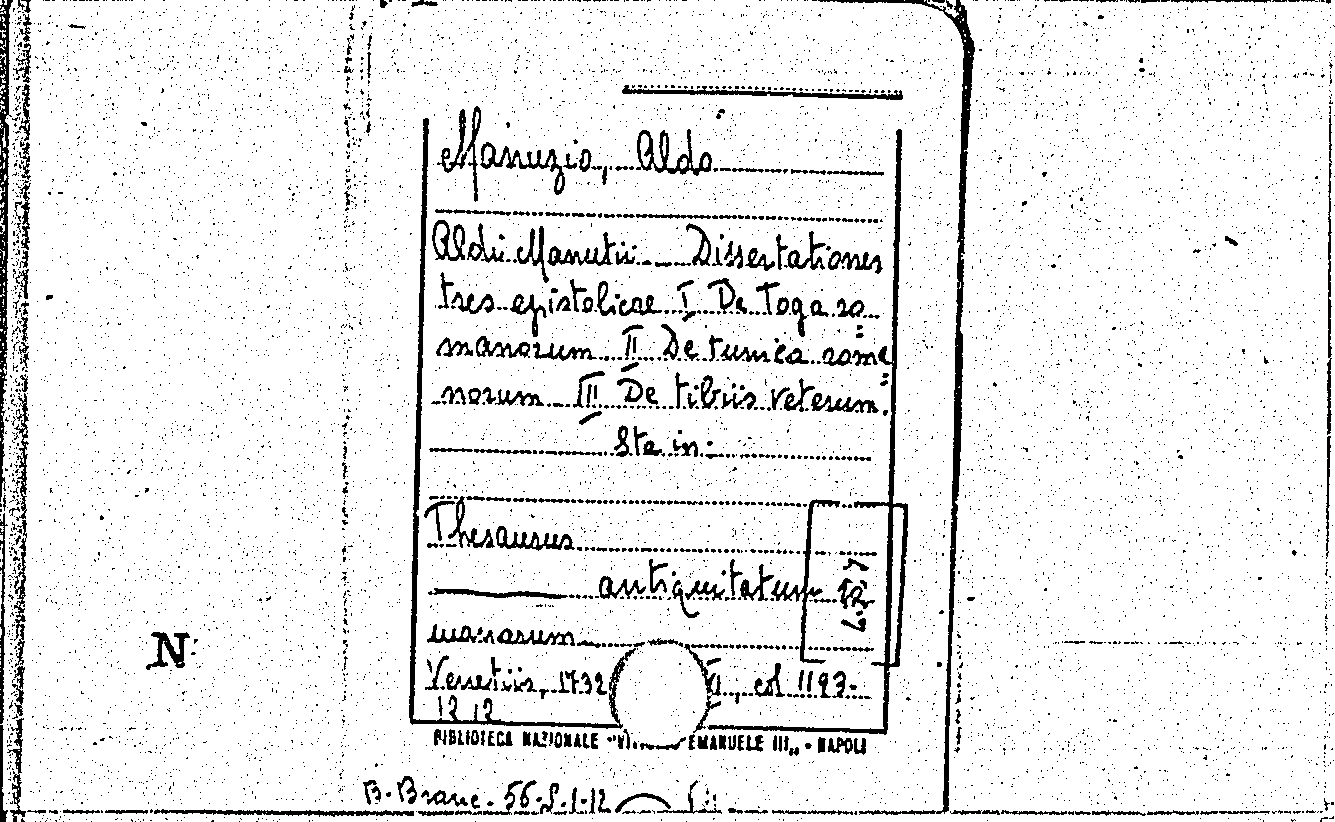 Manuzio, Aldo
Aldi Manutii Dissertationes
tres epistolicae I De Toga ro=
manorum II De tunica roma=
norum III De tibiis veterum.
Sta in:
Thesaurus
antiquitatum
Venetiis, 1732 , col 1193-
1212
BIBLIOTECA NAZIONALE "VI EMANUELE III„ - NAPOLI
B. Branc. 56-
N